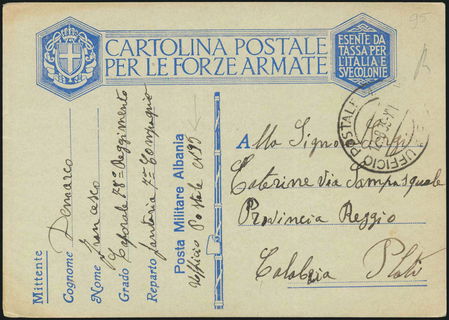 95
CARTOLINA POSTALE
PER LE FORZE ARMATE
ESENTE DA
TASSA PER
L'ITALIA E
SVE COLONIE
UFFICIO POSTALE
Mittente
Cognome Demarco
Nome Francesco
Grado Caporale 78° Reggimento
Reparto fanteria 7ª Compagnia
Posta Militare Albania
Ufficio Postale N 95
Alla Signora
Caterine Via Campasquale
Provincia Reggio
Calabria Platì